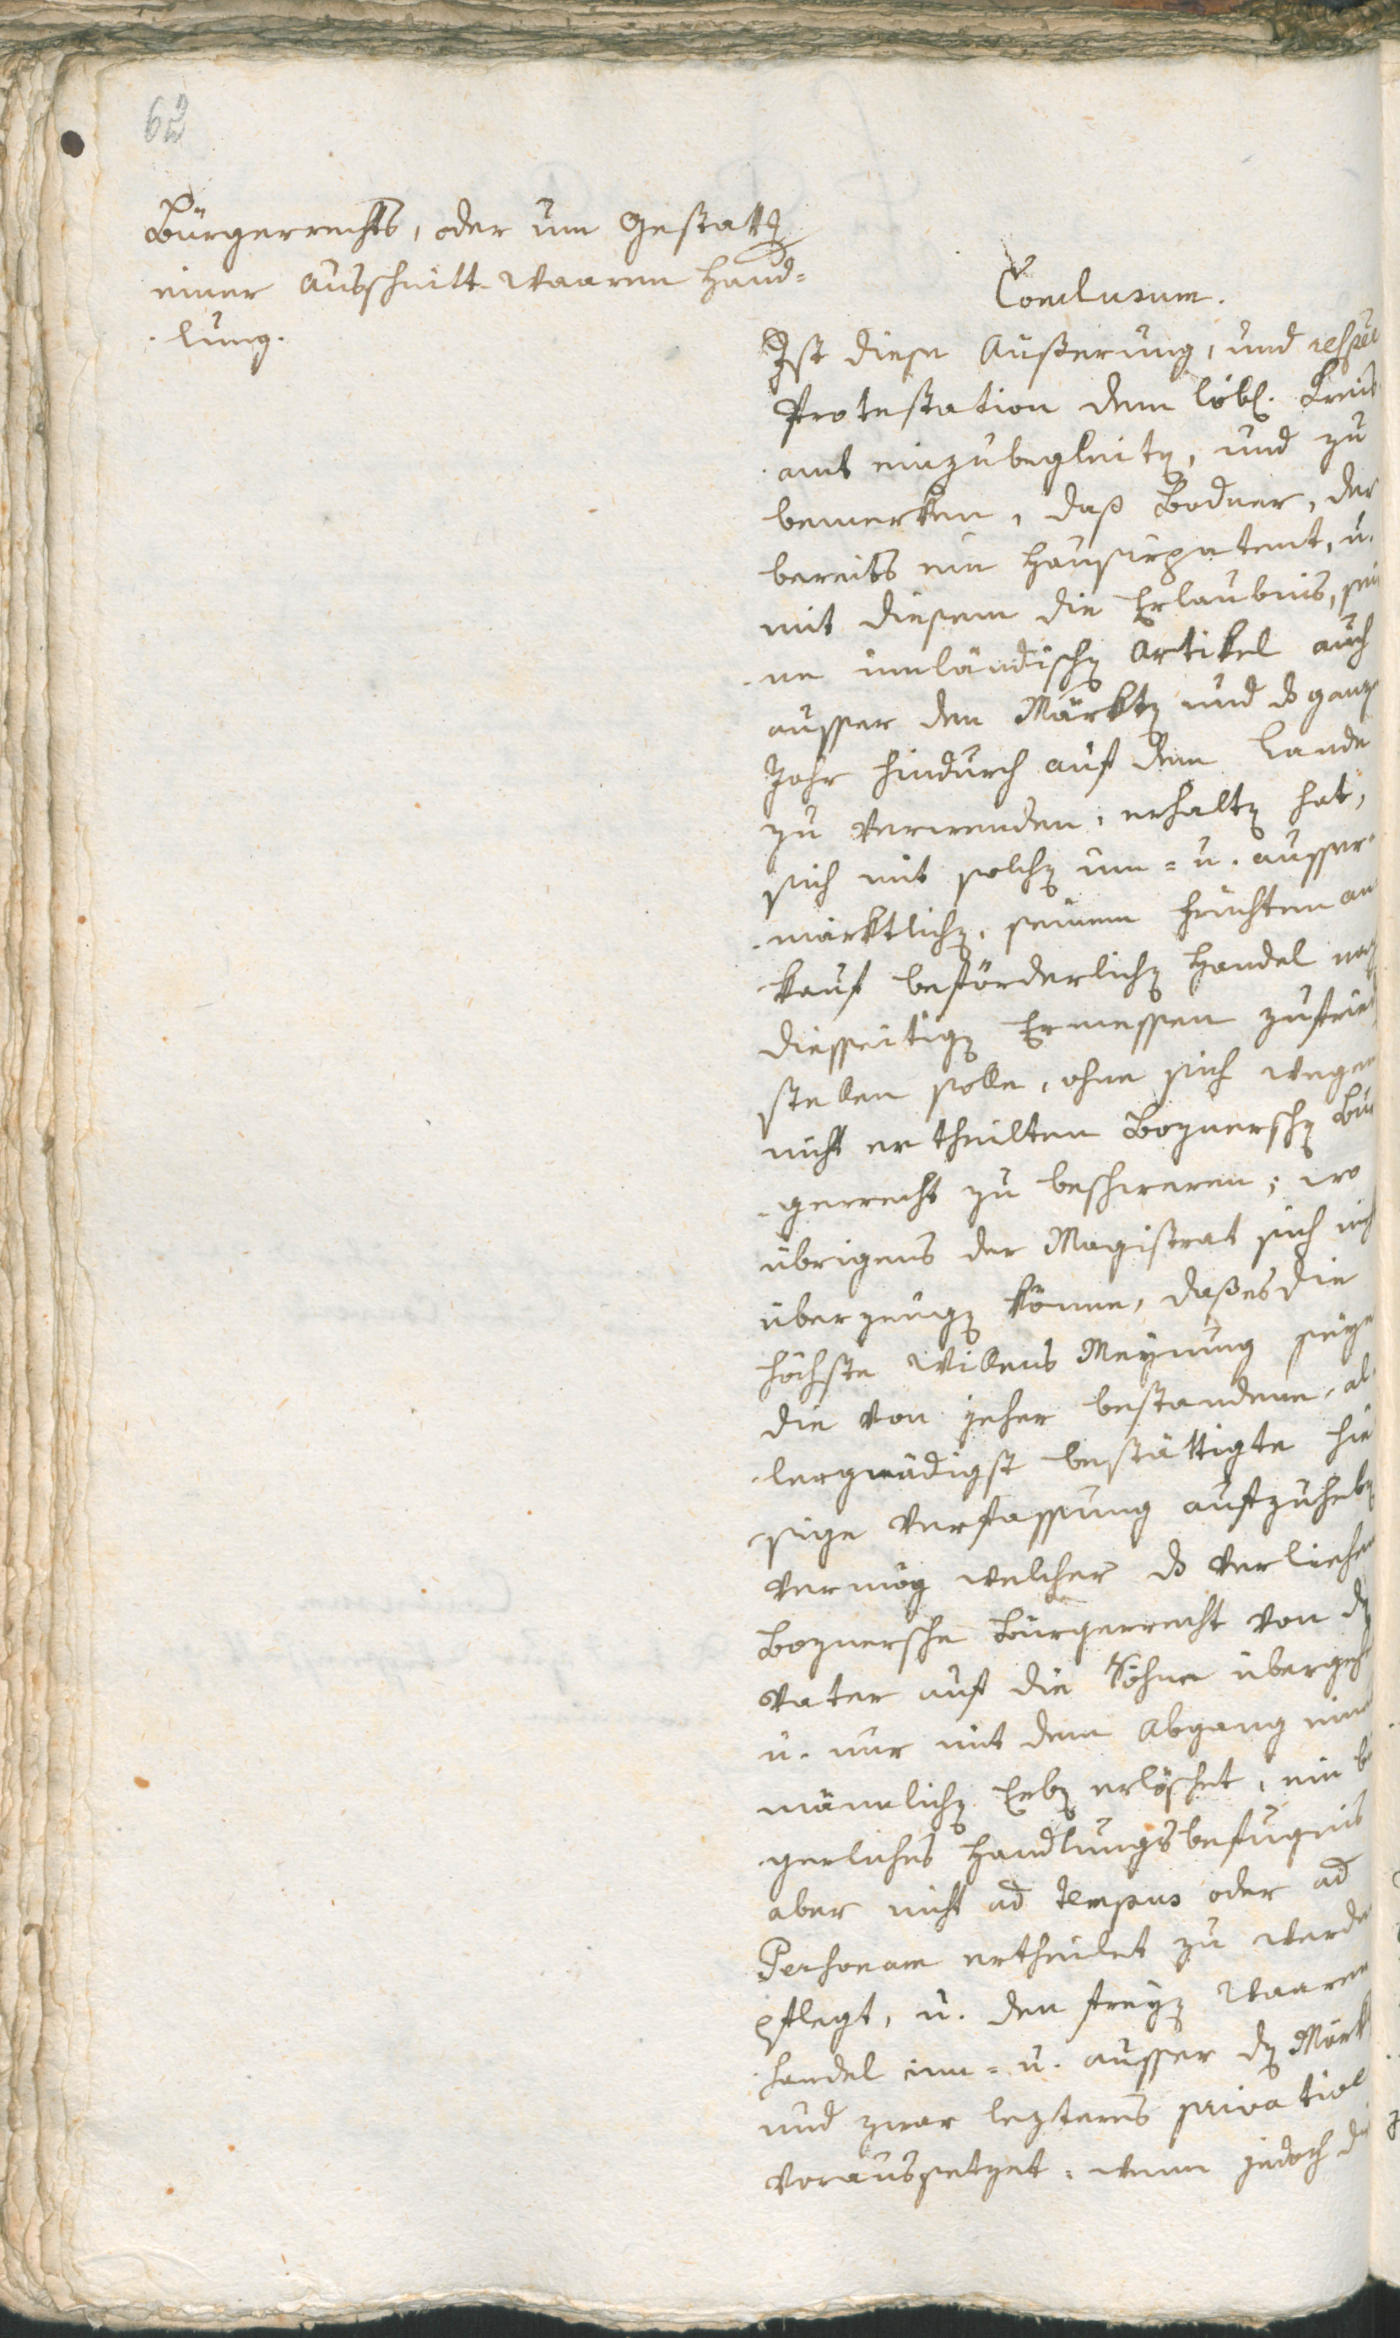 62
Bürgerrechts, oder um Gestattg
einer Ausschnitt-Waaren Hand=
lung.
Conclusum.
Ist diese Äußerung, und respve
Protestation dem löbl. Kreis
amt einzubegleitg, und zu
bemerken, daß Bodner, der
bereits ein Hausirpatent, u.
mit diesem die Erlaubnis, sei
ne innländischg Artikel auch
ausser den Märktg und ds ganze
Jahr hindurch auf dem Lande
zu verwenden, erhaltg hat,
sich mit solchg inn= u. ausser=
märktlichg, seinem Früchten an
kauf beförderlichg Handel nach
diesseitigg Ermessen zufried
stellen solle, ohne sich wegen
nicht ertheilten Boznerschg Bür
gerrecht zu beschweren; wo
übrigens der Magistrat sich nicht
überzeugg könne, daß es die
höchste Willens Meynung seye
die von jeher bestandene, al
lergnädigst bestättigte hie
sige Verfassung aufzuhebg
vermög welcher ds verliehene
Boznersche Bürgerrecht von dg
Vater auf die Söhne übergeht
u. nur mit dem Abgang eines
männlichg Erbg erlöschet, ein bür
gerliches Handlungsbefugnis
aber nicht ad tempus oder ad
Personam ertheilet zu werden
pflegt, u. den freyg Waaren
handel inn= u. ausser dg Märkt
und zwar lezteres privative
voraussetzet. Wenn jedoch die